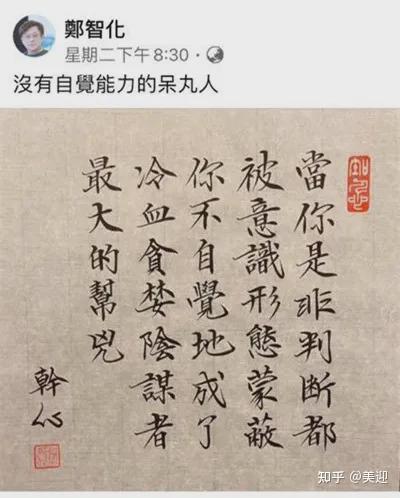 鄭智化
星期二下午8:30 ·
沒有自覺能力的呆丸人
當你是非判断都
被意識形態蒙蔽
你不自覺地成了
冷血貪婪陰謀者
最大的幫兇
知乎 @美迎